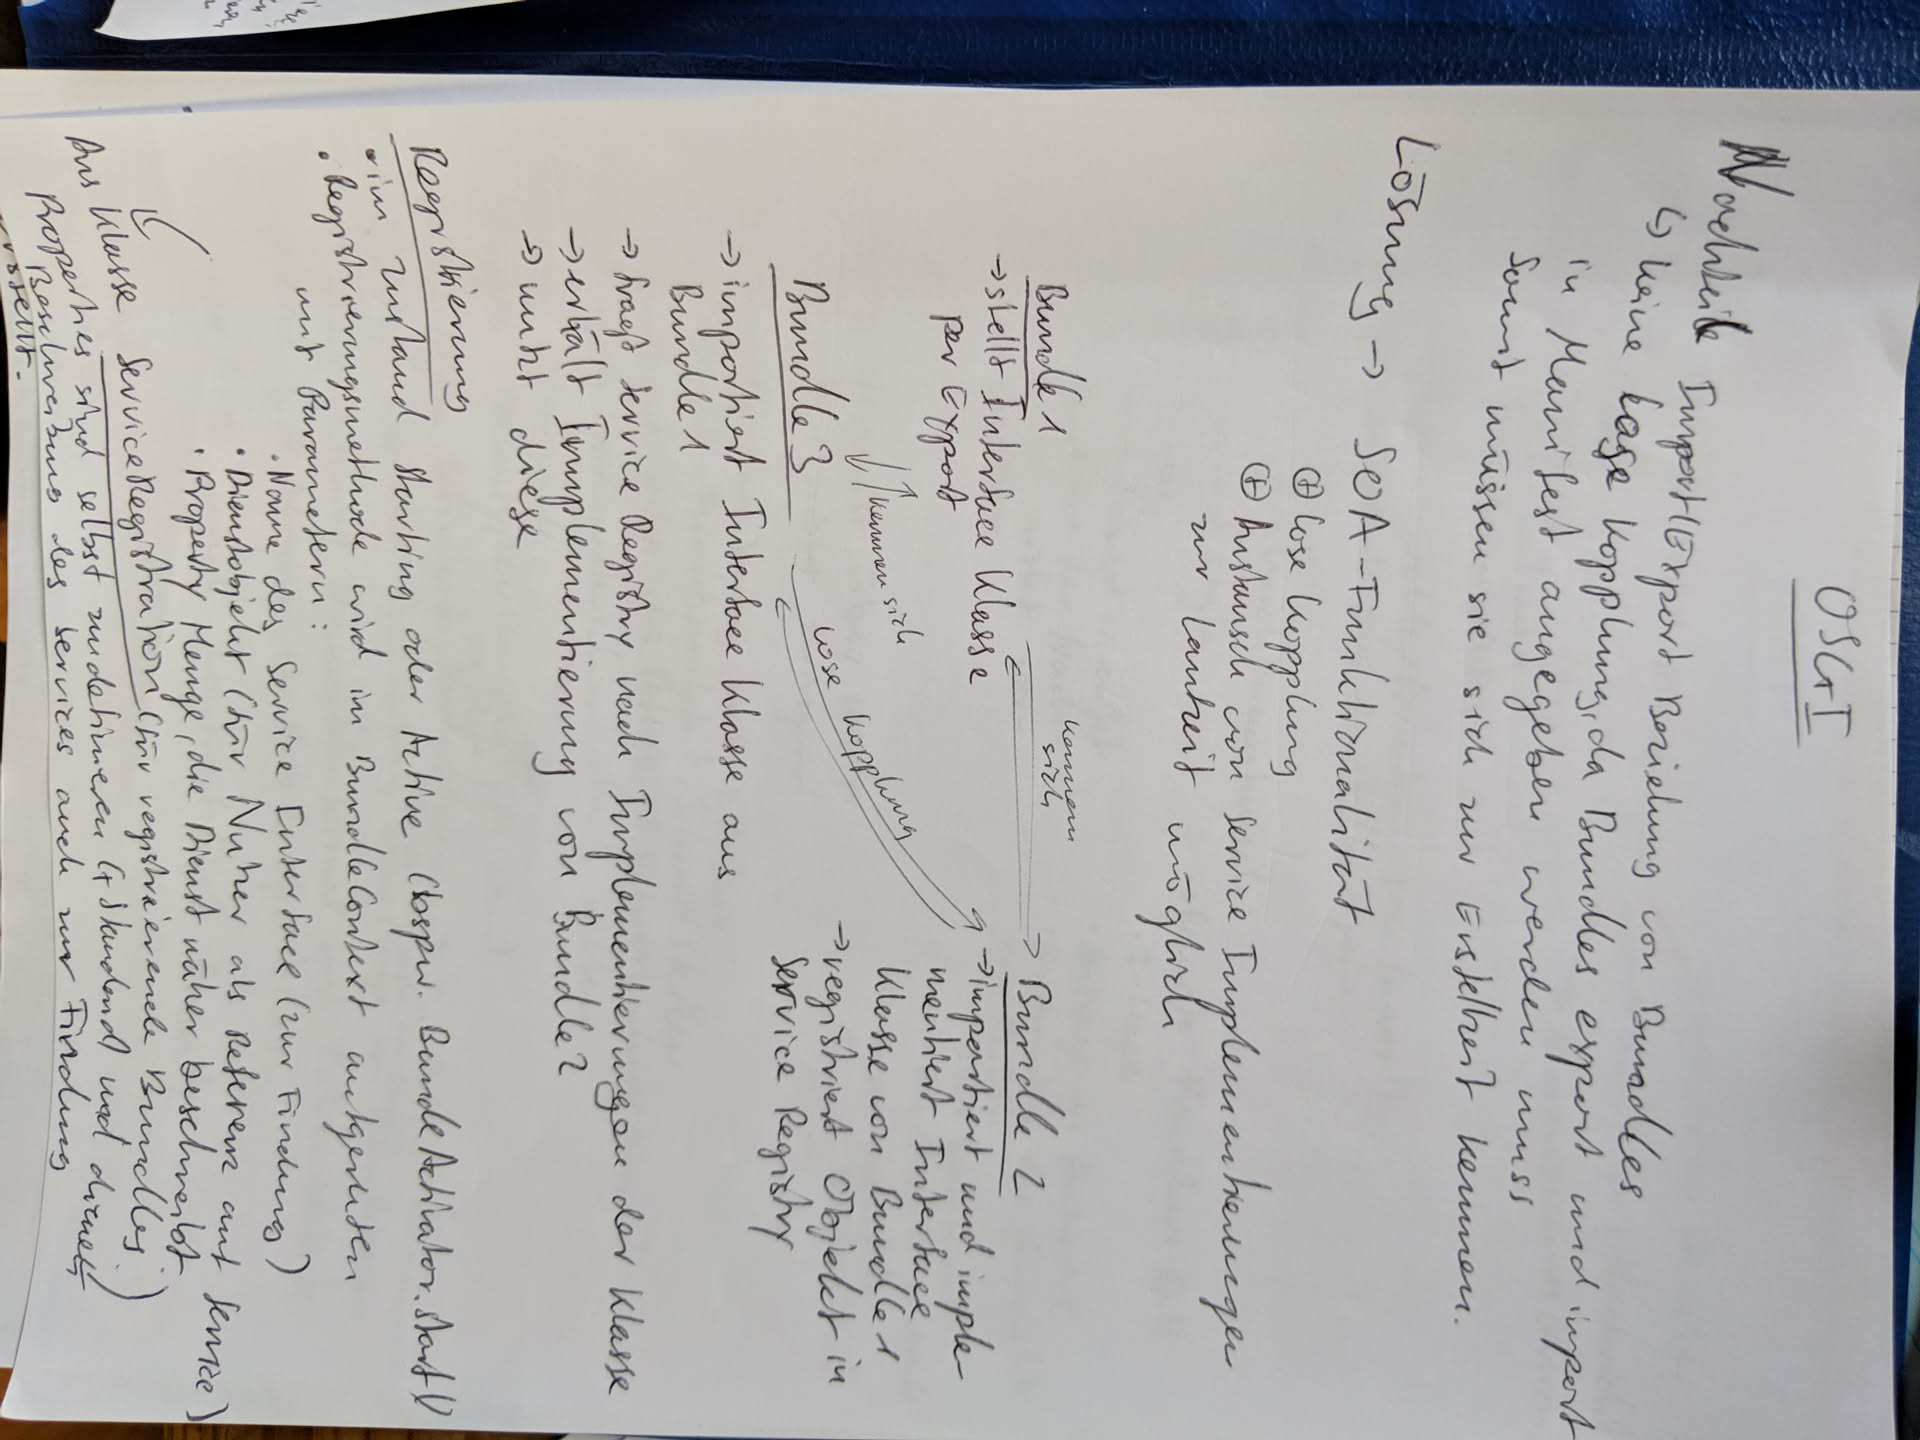 OSGI
Nachteile Import/Export Beziehung von Bundles
↳ keine lose Kopplung, da Bundles export und import
in Manifest angegeben werden muss
Somit müssen sie sich zur Erstellzeit kennen.
Lösung → SOA-Funktionalität
⊕ lose Kopplung
⊕ Austausch von Service Implementierungen
zur Laufzeit möglich
Bundle 1
→ stellt Interface Klasse
per Export
kennen
sich
Bundle 2
→ importiert und imple-
mentiert Interface
Klasse von Bundle 1
→ registriert Objekt in
Service Registry
kennen sich
lose Kopplung
Bundle 3
→ importiert Interface Klasse aus
Bundle 1
→ fragt Service Registry nach Implementierungen der Klasse
→ erhält Implementierung von Bundle 2
→ nutzt diese
Registrierung
• im Zustand starting oder Active (bspw. BundleActivator.start()
• Registrierungsmethode wird in BundleContext aufgerufen
mit Parametern:
• Name des Service Interface (zur Findung)
• Dienstobjekt (für Nutzer als Referenz auf Service)
• Property Menge, die Dienst näher beschreibt
Aus Klasse ServiceRegistration (für registrierende Bundles)
Properties sind selbst zu definieren (+ Standard) und dienen
Beschreibung des Services auch zur Findung